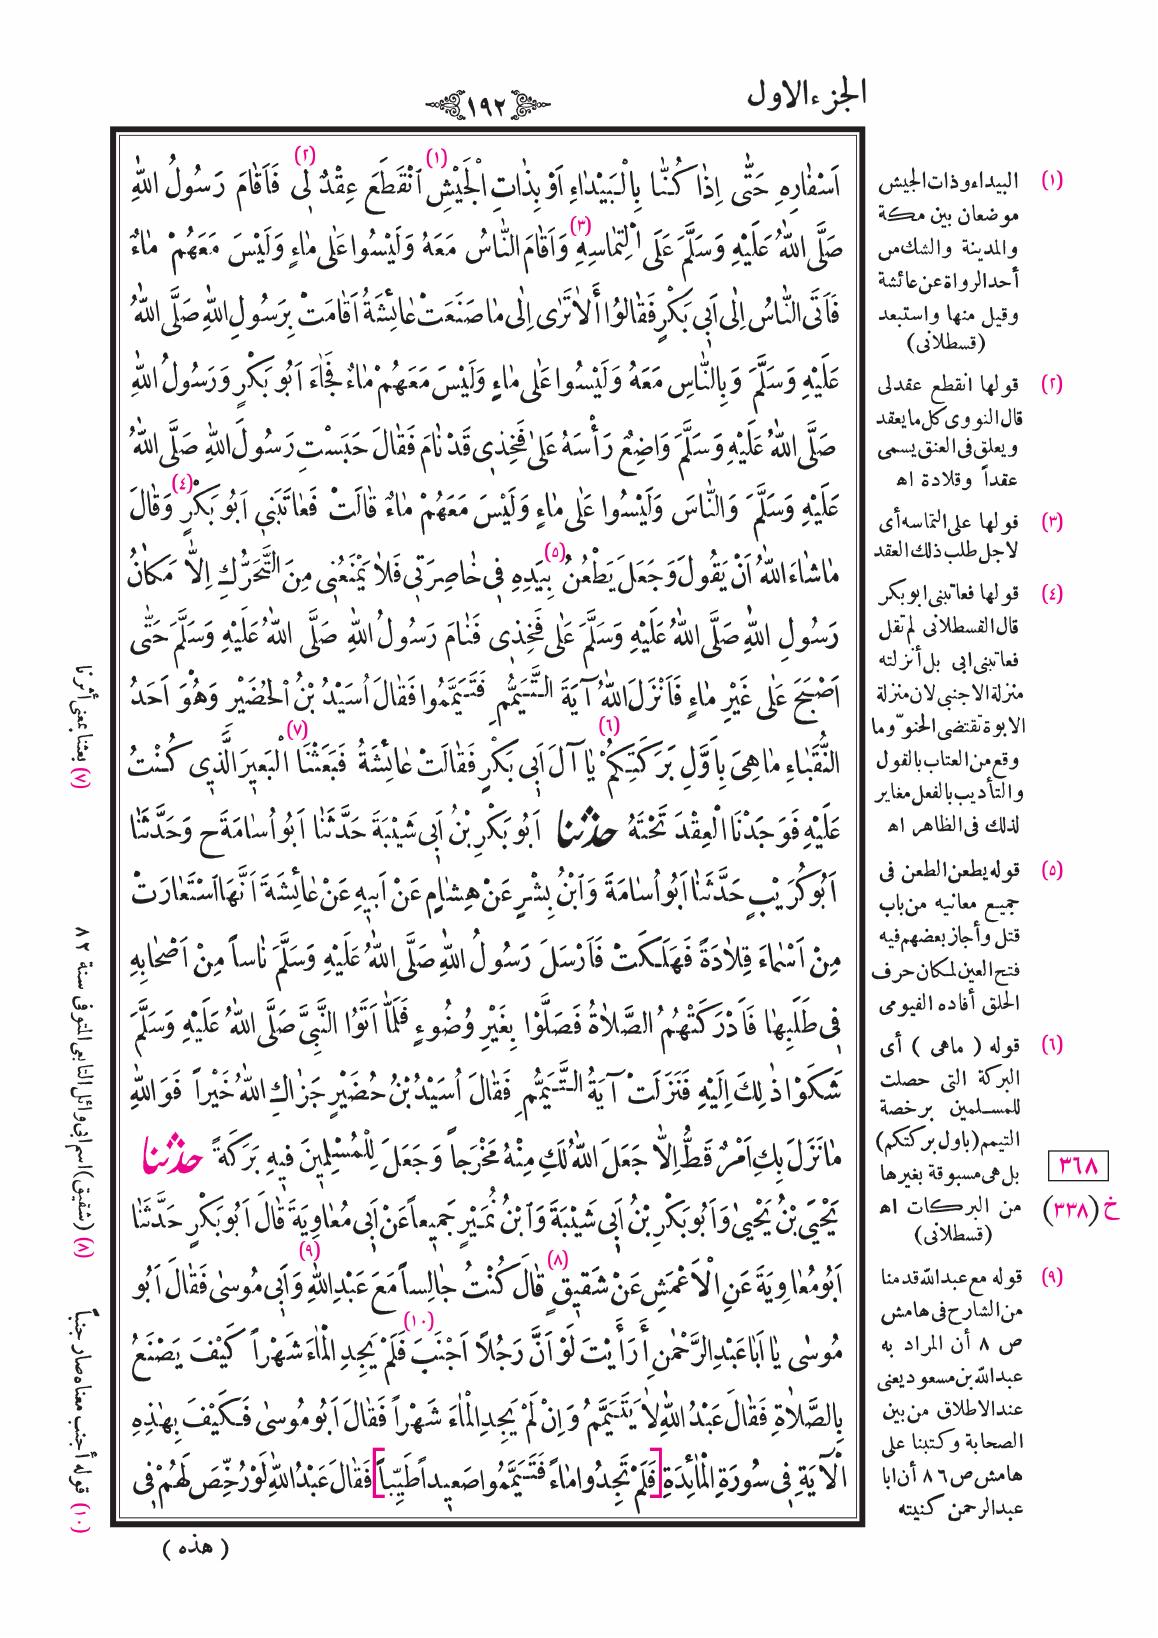 الجزء الاول
١٩٢
اَسْفَارِهِ حَتّٰى اِذَا كُنَّا بِالْبَيْدَاءِ اَوْ بِذَاتِ الْجَيْشِ (١) اَنْقَطَعَ عِقْدٌ لِى (٢) فَاَقَامَ رَسُولُ اللّٰهِ
صَلَّى اللّٰهُ عَلَيْهِ وَسَلَّمَ عَلَى الْتِمَاسِهِ (٣) وَاَقَامَ النَّاسُ مَعَهُ وَلَيْسُوا عَلٰى مَاءٍ وَلَيْسَ مَعَهُمْ مَاءٌ
فَاَتَى النَّاسُ اِلٰى اَبِى بَكْرٍ فَقَالُوا أَلَا تَرٰى اِلٰى مَا صَنَعَتْ عَائِشَةُ اَقَامَتْ بِرَسُولِ اللّٰهِ صَلَّى اللّٰهُ
عَلَيْهِ وَسَلَّمَ وَبِالنَّاسِ مَعَهُ وَلَيْسُوا عَلٰى مَاءٍ وَلَيْسَ مَعَهُمْ مَاءٌ فَجَاءَ اَبُو بَكْرٍ وَرَسُولُ اللّٰهِ
صَلَّى اللّٰهُ عَلَيْهِ وَسَلَّمَ وَاضِعٌ رَأْسَهُ عَلٰى فَخِذِى قَدْ نَامَ فَقَالَ حَبَسْتِ رَسُولَ اللّٰهِ صَلَّى اللّٰهُ
عَلَيْهِ وَسَلَّمَ وَالنَّاسَ وَلَيْسُوا عَلٰى مَاءٍ وَلَيْسَ مَعَهُمْ مَاءٌ قَالَتْ فَعَاتَبَنِى اَبُو بَكْرٍ (٤) وَقَالَ
مَاشَاءَ اللّٰهُ اَنْ يَقُولَ وَجَعَلَ يَطْعُنُ (٥) بِيَدِهِ فِى خَاصِرَتِى فَلَا يَمْنَعُنِى مِنَ التَّحَرُّكِ اِلَّا مَكَانُ
رَسُولِ اللّٰهِ صَلَّى اللّٰهُ عَلَيْهِ وَسَلَّمَ عَلٰى فَخِذِى فَنَامَ رَسُولُ اللّٰهِ صَلَّى اللّٰهُ عَلَيْهِ وَسَلَّمَ حَتّٰى
اَصْبَحَ عَلٰى غَيْرِ مَاءٍ فَاَنْزَلَ اللّٰهُ آيَةَ التَّيَمُّمِ فَتَيَمَّمُوا فَقَالَ اُسَيْدُ بْنُ الْحُضَيْرِ وَهُوَ اَحَدُ
النُّقَبَاءِ مَا هِىَ بِاَوَّلِ بَرَكَتِكُمْ (٦) يَا آلَ اَبِى بَكْرٍ فَقَالَتْ عَائِشَةُ فَبَعَثْنَا (٧) الْبَعِيرَ الَّذِى كُنْتُ
عَلَيْهِ فَوَجَدْنَا الْعِقْدَ تَحْتَهُ حدثنا اَبُو بَكْرِ بْنُ اَبِى شَيْبَةَ حَدَّثَنَا اَبُو اُسَامَةَ ح وَحَدَّثَنَا
اَبُو كُرَيْبٍ حَدَّثَنَا اَبُو اُسَامَةَ وَابْنُ بِشْرٍ عَنْ هِشَامٍ عَنْ اَبِيهِ عَنْ عَائِشَةَ اَنَّهَا اسْتَعَارَتْ
مِنْ اَسْمَاءَ قِلَادَةً فَهَلَكَتْ فَاَرْسَلَ رَسُولُ اللّٰهِ صَلَّى اللّٰهُ عَلَيْهِ وَسَلَّمَ نَاساً مِنْ اَصْحَابِهِ
فِى طَلَبِهَا فَاَدْرَكَتْهُمُ الصَّلَاةُ فَصَلَّوْا بِغَيْرِ وُضُوءٍ فَلَمَّا اَتَوُا النَّبِىَّ صَلَّى اللّٰهُ عَلَيْهِ وَسَلَّمَ
شَكَوْا ذٰلِكَ اِلَيْهِ فَنَزَلَتْ آيَةُ التَّيَمُّمِ فَقَالَ اُسَيْدُ بْنُ حُضَيْرٍ جَزَاكِ اللّٰهُ خَيْراً فَوَاللّٰهِ
مَا نَزَلَ بِكِ اَمْرٌ قَطُّ اِلَّا جَعَلَ اللّٰهُ لَكِ مِنْهُ مَخْرَجاً وَجَعَلَ لِلْمُسْلِمِينَ فِيهِ بَرَكَةً حدثنا
يَحْيَى بْنُ يَحْيٰى وَاَبُو بَكْرِ بْنُ اَبِى شَيْبَةَ وَابْنُ نُمَيْرٍ جَمِيعاً عَنْ اَبِى مُعَاوِيَةَ قَالَ اَبُو بَكْرٍ حَدَّثَنَا
اَبُو مُعَاوِيَةَ عَنِ الْاَعْمَشِ عَنْ شَقِيقٍ (٨) قَالَ كُنْتُ جَالِساً مَعَ عَبْدِ اللّٰهِ (٩) وَاَبِى مُوسٰى فَقَالَ اَبُو
مُوسٰى يَا اَبَا عَبْدِ الرَّحْمٰنِ أَرَأَيْتَ لَوْ اَنَّ رَجُلاً اَجْنَبَ (١٠) فَلَمْ يَجِدِ الْمَاءَ شَهْراً كَيْفَ يَصْنَعُ
بِالصَّلَاةِ فَقَالَ عَبْدُ اللّٰهِ لَا يَتَيَمَّمُ وَاِنْ لَمْ يَجِدِ الْمَاءَ شَهْراً فَقَالَ اَبُو مُوسٰى فَكَيْفَ بِهٰذِهِ
الْآيَةِ فِى سُورَةِ الْمَائِدَةِ [فَلَمْ تَجِدُوا مَاءً فَتَيَمَّمُوا صَعِيداً طَيِّباً] فَقَالَ عَبْدُ اللّٰهِ لَوْ رُخِّصَ لَهُمْ فِى
( هذه )
(١) البيداء وذات الجيش
موضعان بين مكة
والمدينة والشك من
أحد الرواة عن عائشة
وقيل منها واستبعد
(قسطلانى)
(٢) قولها انقطع عقد لى
قال النووى كل ما يعقد
ويعلق فى العنق يسمى
عقداً وقلادة اه
(٣) قولها على التماسه أى
لاجل طلب ذلك العقد
(٤) قولها فعاتبنى ابو بكر
قال القسطلانى لم تقل
فعاتبنى ابى بل أنزلته
منزلة الاجنبى لان منزلة
الابوة تقتضى الحنوّ وما
وقع من العتاب بالقول
والتأديب بالفعل مغاير
لذلك فى الظاهر اه
(٥) قوله يطعن الطعن فى
جميع معانيه من باب
قتل وأجاز بعضهم فيه
فتح العين لمكان حرف
الحلق أفاده الفيومى
(٦) قوله ( ماهى ) أى
البركة التى حصلت
للمسلمين برخصة
التيمم (باول بركتكم)
بل هى مسبوقة بغيرها
من البركات اه
(قسطلانى)
٣٦٨
خ (٣٣٨)
(٩) قوله مع عبدالله قدمنا
من الشارح فى هامش
ص ٨ أن المراد به
عبدالله بن مسعود يعنى
عند الاطلاق من بين
الصحابة وكتبنا على
هامش ص ٨٦ أن ابا
عبدالرحمن كنيته
(٧) بعثنا بمعنى أثرنا
(٨) (شقيق) اسم ابى وائل التابعى المتوفى سنة ٨٢
(١٠) قوله أجنب معناه صار جنباً